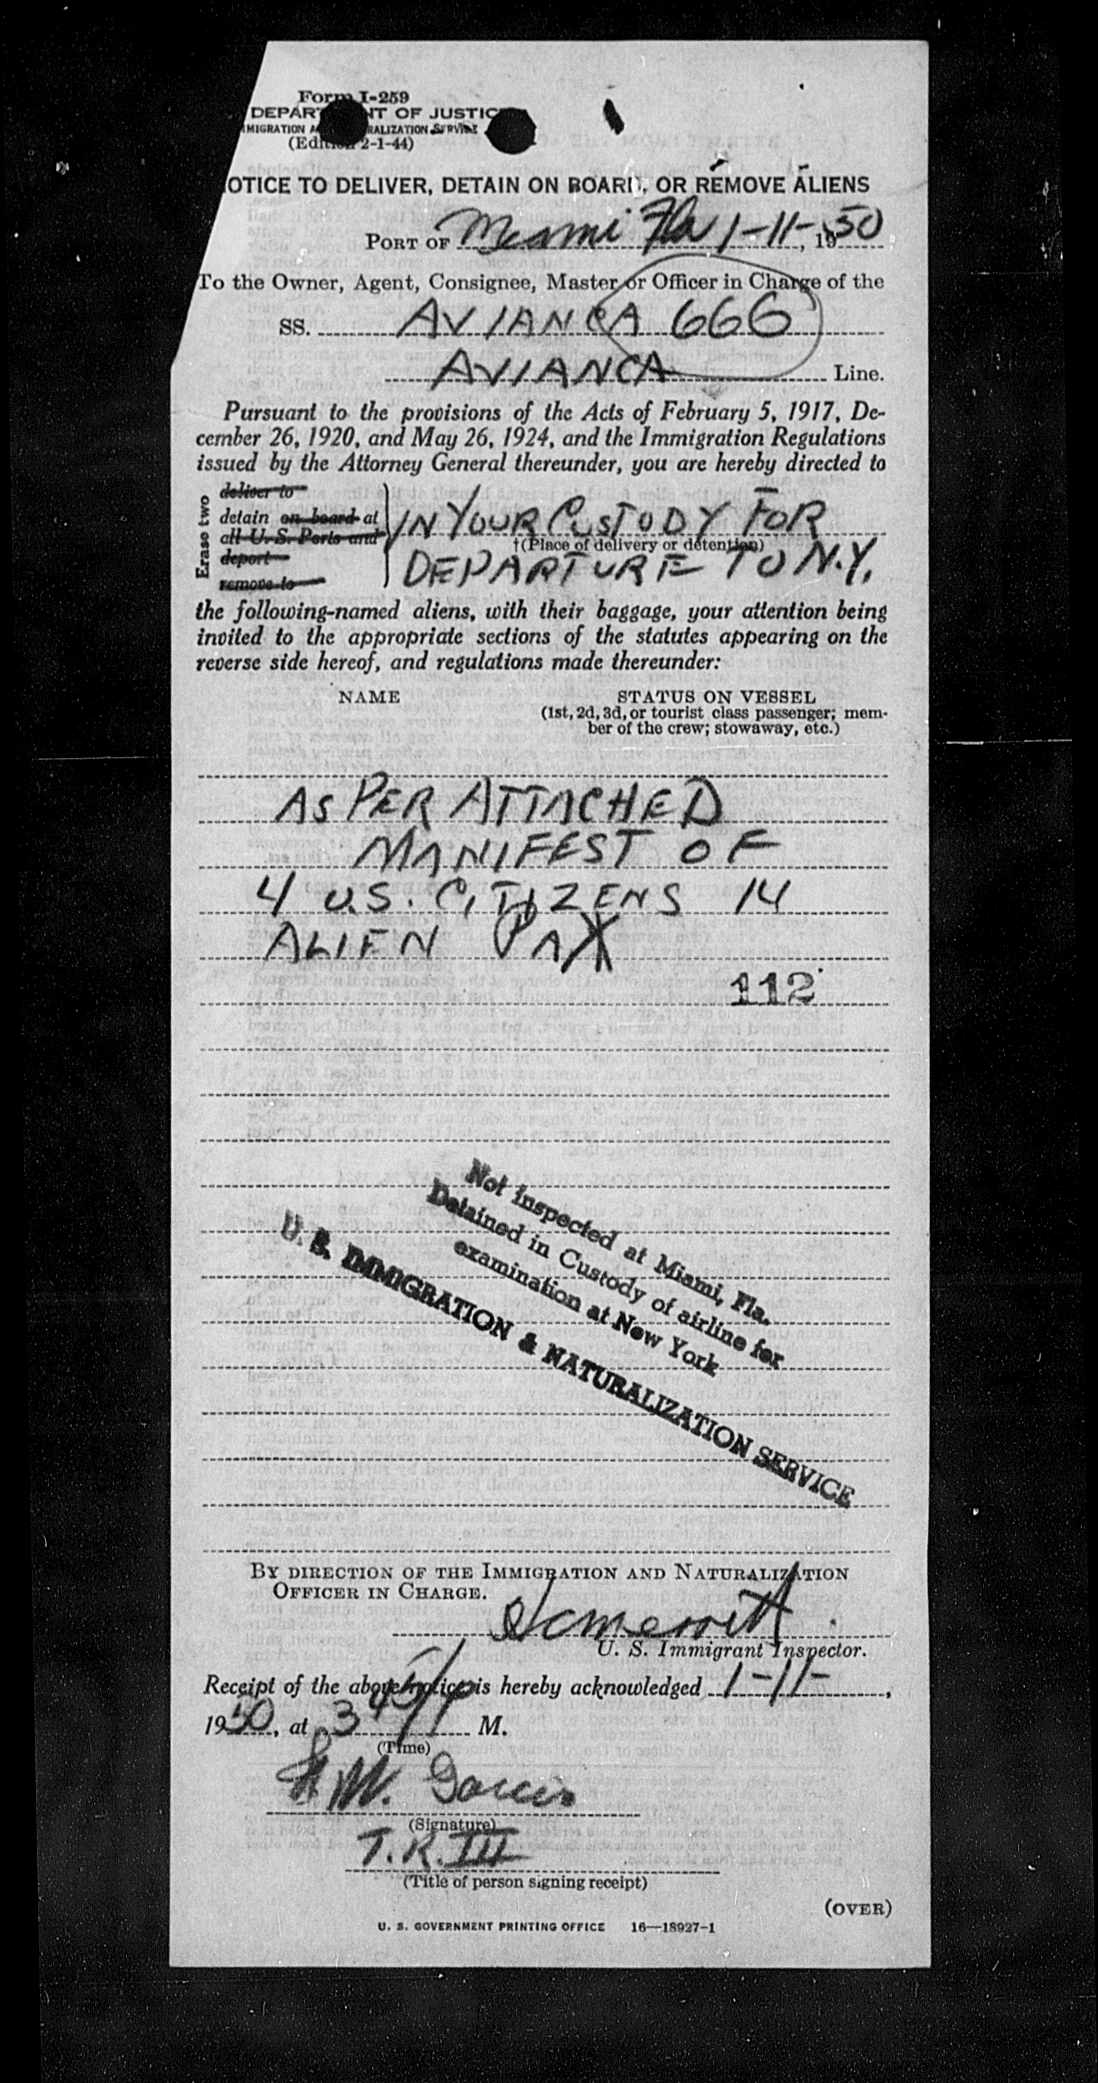 Form I-259
DEPARTMENT OF JUSTICE
IMMIGRATION AND NATURALIZATION SERVICE
(Edition 2-1-44)
OTICE TO DELIVER, DETAIN ON BOARD, OR REMOVE ALIENS
PORT OF Miami Fla 1-11-, 1950
To the Owner, Agent, Consignee, Master or Officer in Charge of the
SS. AVIANCA 666
AVIANCA Line.
Pursuant to the provisions of the Acts of February 5, 1917, De-
cember 26, 1920, and May 26, 1924, and the Immigration Regulations
issued by the Attorney General thereunder, you are hereby directed to
Erase two
deliver to
detain on board at
all U. S. Ports and
deport
remove to
IN YOUR CUSTODY FOR
†(Place of delivery or detention)
DEPARTURE TO N.Y.
the following-named aliens, with their baggage, your attention being
invited to the appropriate sections of the statutes appearing on the
reverse side hereof, and regulations made thereunder:
NAME STATUS ON VESSEL
(1st, 2d, 3d, or tourist class passenger; mem-
ber of the crew; stowaway, etc.)
AS PER ATTACHED
MANIFEST OF
4 U.S. CITIZENS 14
ALIEN PAX
112
Not inspected at Miami, Fla.
Detained in Custody of airline for
examination at New York
U. S. IMMIGRATION & NATURALIZATION SERVICE
BY DIRECTION OF THE IMMIGRATION AND NATURALIZATION
OFFICER IN CHARGE.
U. S. Immigrant Inspector.
Receipt of the above notice is hereby acknowledged 1-11-,
1950, at 3 45 P M.
(Time)
(Signature)
T.R. III
(Title of person signing receipt)
(OVER)
U. S. GOVERNMENT PRINTING OFFICE 16—18927-1